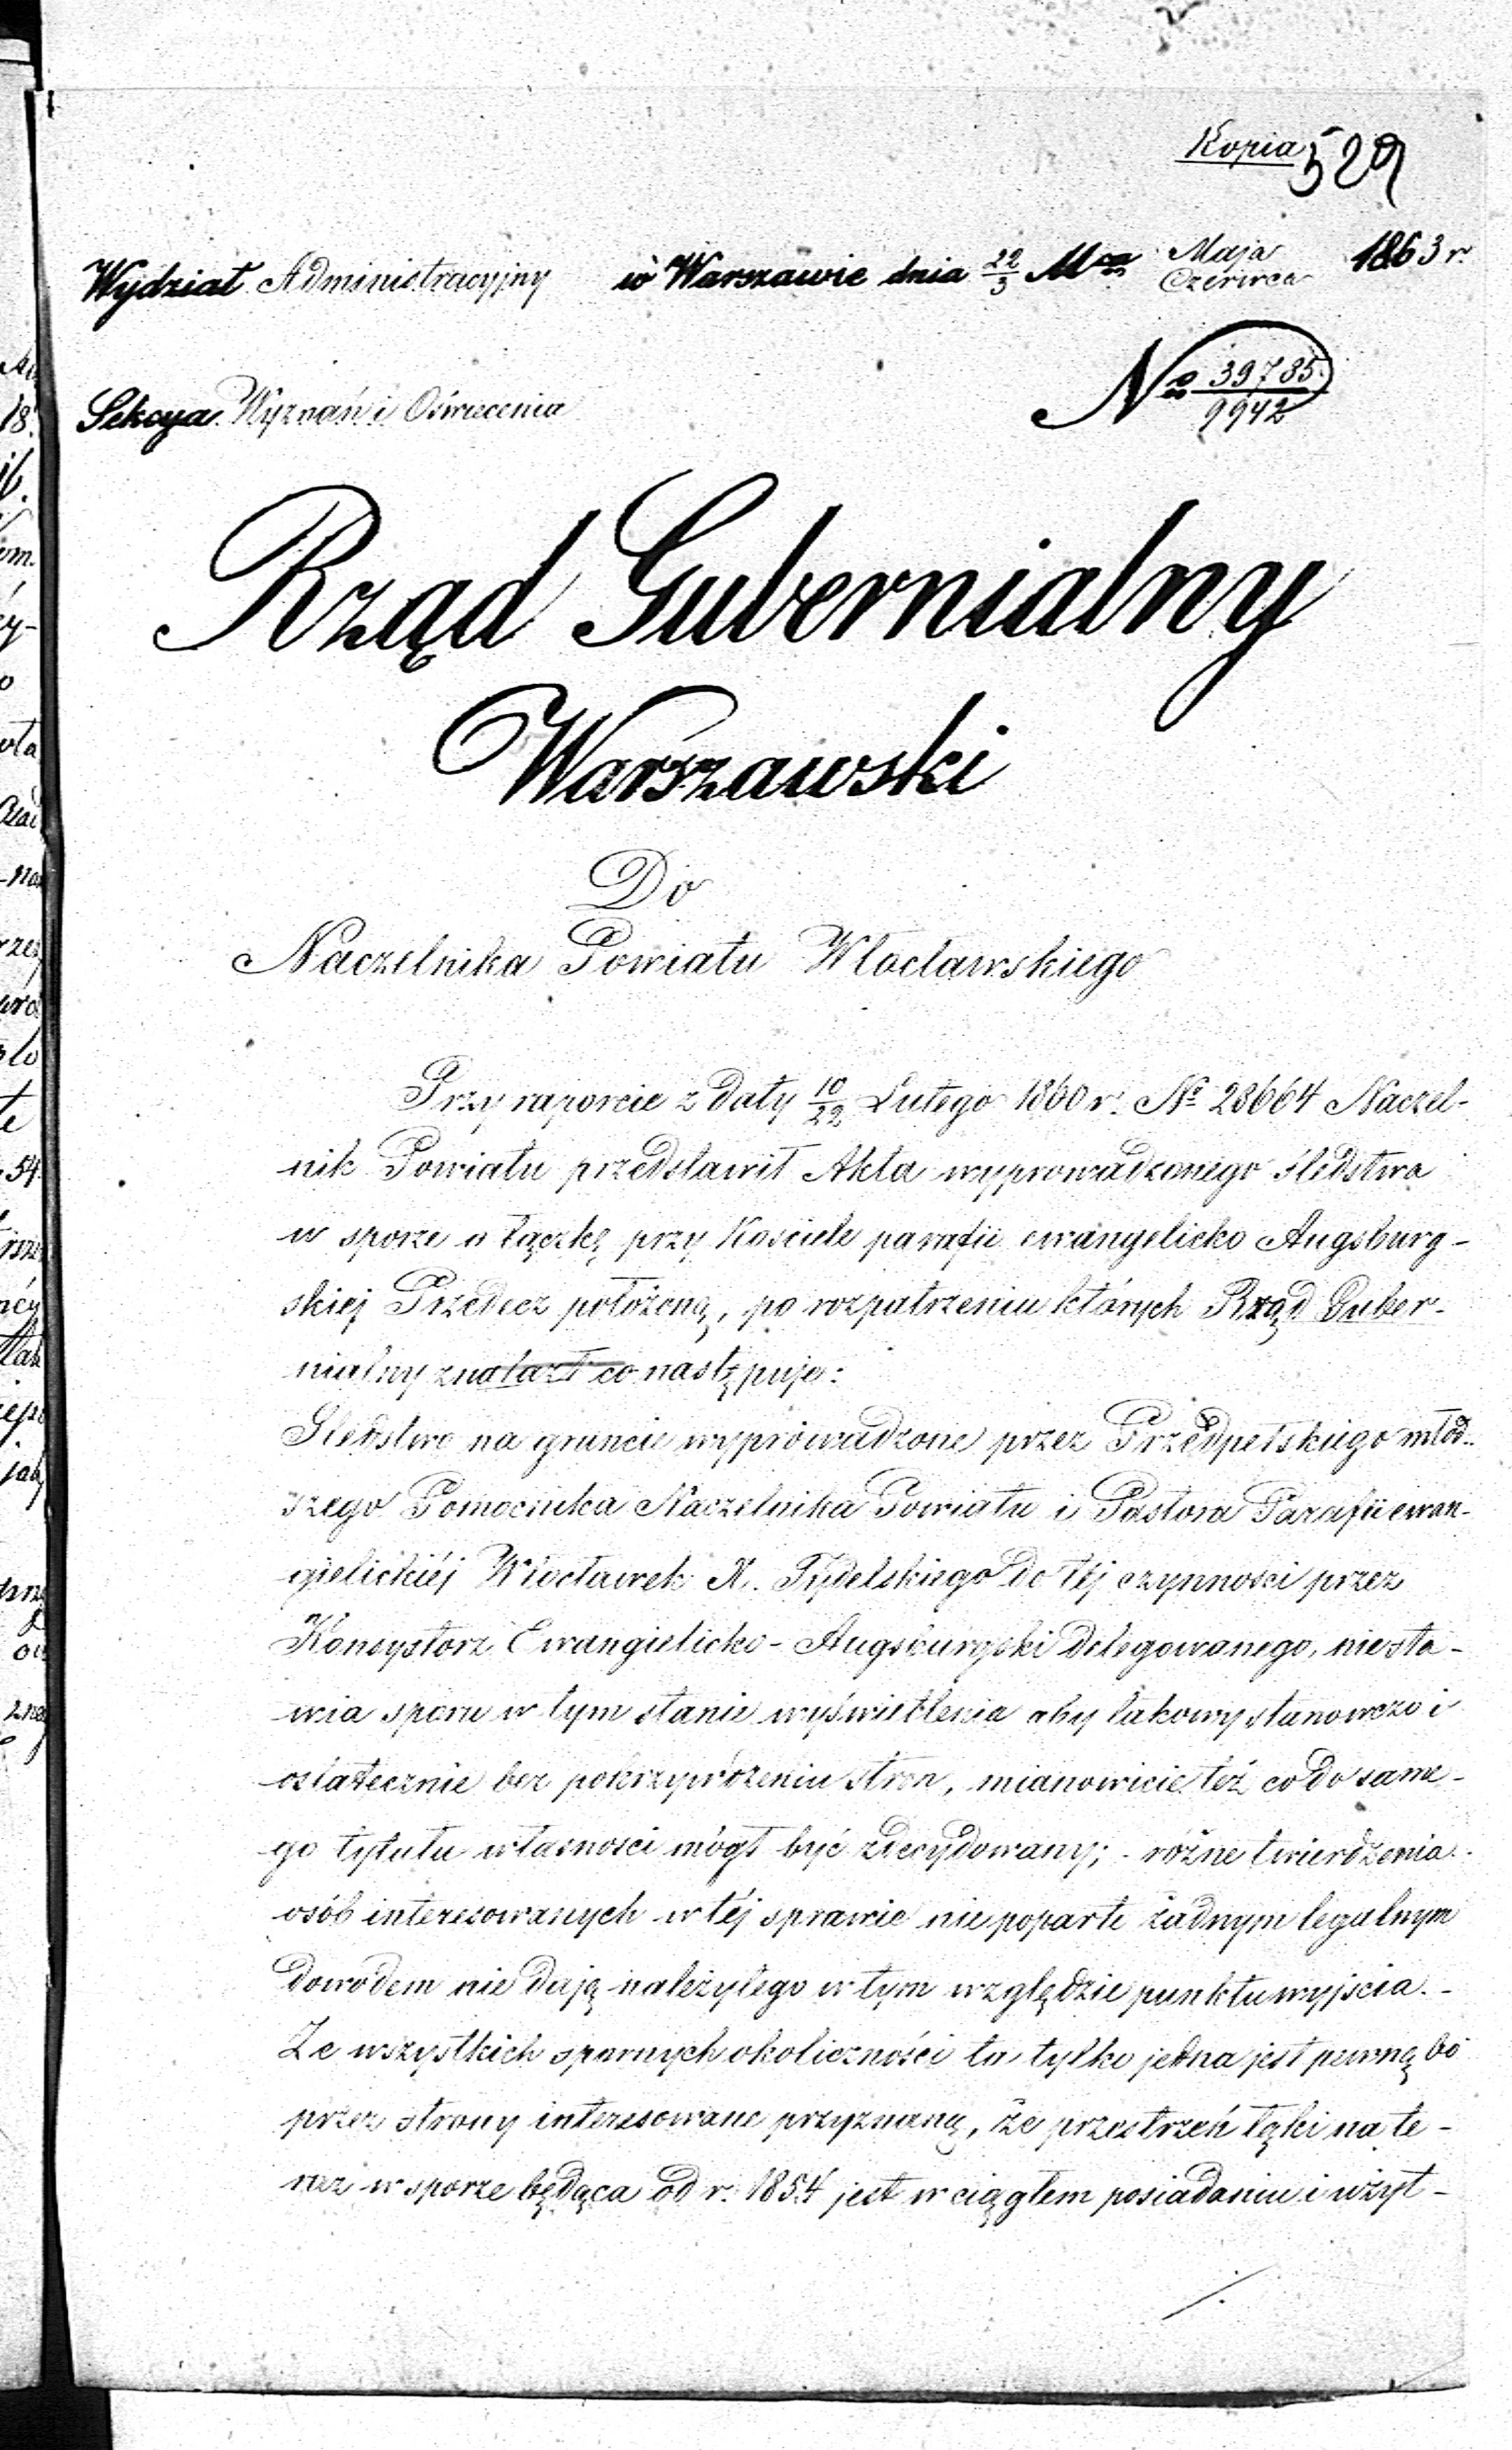 Kopia 529
Wydział Administracyjny w Warszawie dnia 22/3 Mca Maja/Czerwca 1863 r.
Sekcya Wyznań i Oświecenia
No 39785/9942
Rząd Gubernialny
Warszawski
Do
Naczelnika Powiatu Włocławskiego
Przy raporcie z daty 10/22 Lutego 1860 r. No 23664 Naczel-
nik Powiatu przedstawił Akta wyprowadzonego śledstwa
w sporze o łączkę przy Kościele parafii ewangelicko Augsburg-
skiej Przedecz położoną, po rozpatrzeniu których Rząd Guber-
nialny znalazł co następuje:
Śledstwo na gruncie wyprowadzone przez Przedpełskiego młod-
szego Pomocnika Naczelnika Powiatu i Pastora Parafii ewan-
gielickiéj Włocławek X. do téj czynności przez
Konsystorz Ewangielicko-Augsburgski delegowanego, niesta-
wia sporu w tym stanie wyświetlenia aby takowy stanowczo i
ostatecznie bez pokrzywdzeniu stron, mianowicie też co do same-
go tytułu własności mógł być zdecydowany; - różne twierdzenia
osób interesowanych w téj sprawie nie poparte żadnym legalnym
dowodem nie dają należytego w tym względzie punktu wyjścia. -
Ze wszystkich spornych okoliczności ta tylko jedna jest pewną bo
przez strony interesowane przyznaną, że przestrzeń łąki na te-
raz w sporze będąca od r. 1854 jest w ciągłem posiadaniu i użyt-